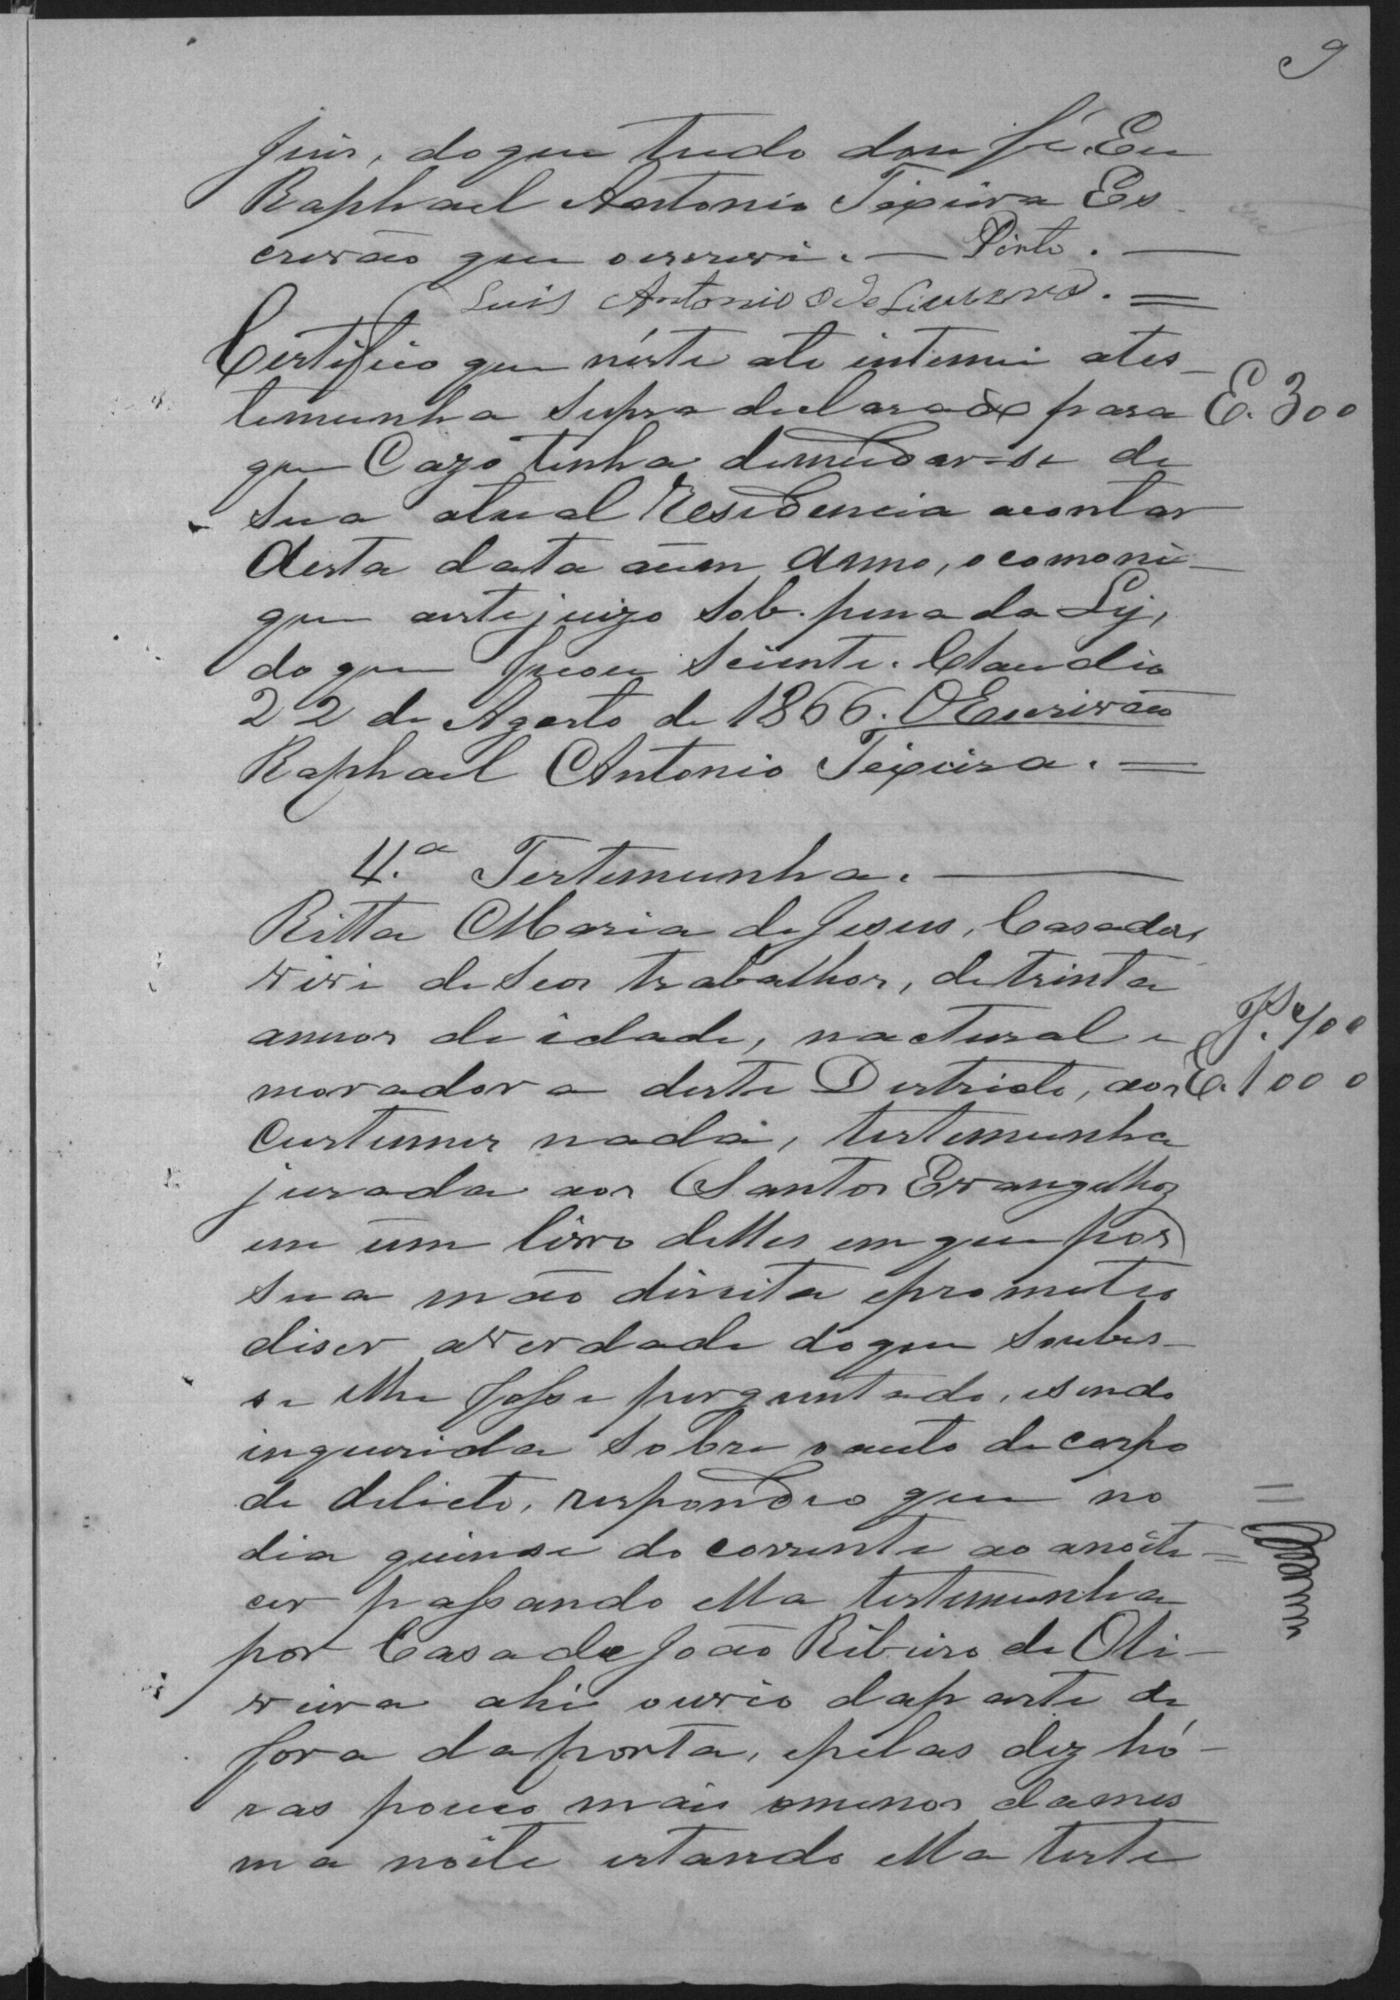 9
Juis, do que tudo dou fé. Eu
Raphael Antonio Teixeira Es-
crivão que o escrevi. — Pinto. —
Luis Antonio de =
Certifico que néste ato intimei a tes-
temunha supra declarado para E. 300
que Cazo tenha de mudar-se de
sua atual Residencia a contar
desta data a um anno, o comoni-
que a este juizo sob. pena da Ley,
do que ficou sciente. Claudio
22 de Agosto de 1866. O Escrivão
Raphael Antonio Teixeira. =
4.ª Testemunha. —
Ritta Maria de Jesus, Casada,
vive de seos trabalhos, de trinta
annos de idade, nactural e Js. 400
moradora deste Destricto, aos E. 1000
custumes nada, testemunha
jurada aos Santos Evangelhos
em um livro delles em que pos
sua mão direita e prometeo
diser a verdade do que soubes-
se e lhe fosse perguntado, e sendo
inquerida sobre o auto de corpo
de delicto, respondeo que no
dia quinse do corrente ao anoite-
cer passando ella testemunha
por Casa de João Ribeiro de Oli-
veira ahi ouvio da parte de
fora da porta, e pelas dez hó-
ras pouco mais o menos da mes
ma noite estando ella teste